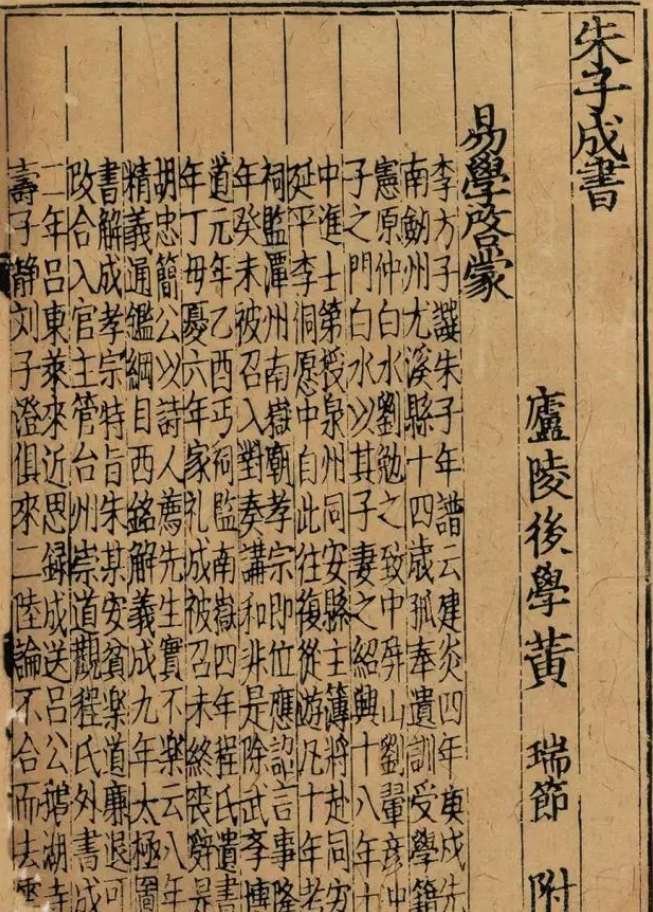 朱子成書
廬陵後學黄 瑞節 附
易學啓蒙
李方子譔朱子年譜云建炎四年庚戌先
南劒州尤溪縣十四歳孤奉遺訓受學籍
憲原仲白水劉勉之致中屏山劉翬彦冲
子之門白水以其子妻之紹興十八年十
中進士第授泉州同安縣主簿將赴同安
延平李侗愿中自此往復從遊凡十年考
祠監潭州南嶽廟孝宗即位應詔言事隆
年癸未被召入對奏講和非是除武學博
道元年乙酉丐祠監南嶽四年程氏遺書
年丁母憂六年家礼成被召未終喪辭是
胡忠簡公以詩人薦先生實不樂云八年
精義通鑑綱目西銘解義成九年太極圖
書解成孝宗特旨朱某安貧楽道廉退可
政合入官主管台州崇道觀程氏外書成
二年吕東萊來近思録成送吕公鵝湖寺
壽子静刘子澄俱來二陸論不合而去